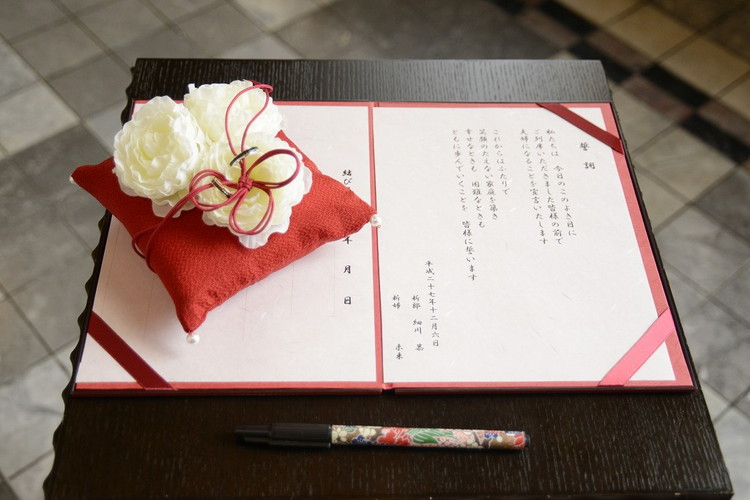 誓詞
私たちは 今日のこのよき日に
ご列席いただきました皆様の前で
夫婦になることを宣言いたします
これからはふたりで
笑顔のたえない家庭を築き
幸せなときも 困難なときも
ともに歩んでいくことを 皆様に誓います
平成二十七年十二月六日
新郎 細川
新婦 未来
結び
年 月 日